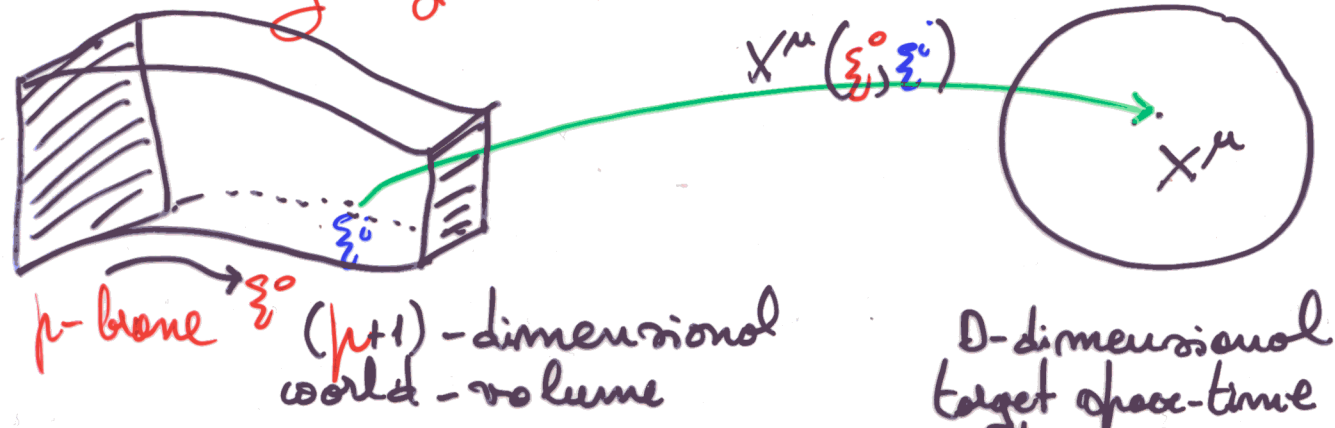 X^μ(ξ⁰, ξⁱ)
X^μ
ξⁱ
ξ⁰
p-brane
(p+1)-dimensional
world-volume
D-dimensional
target space-time